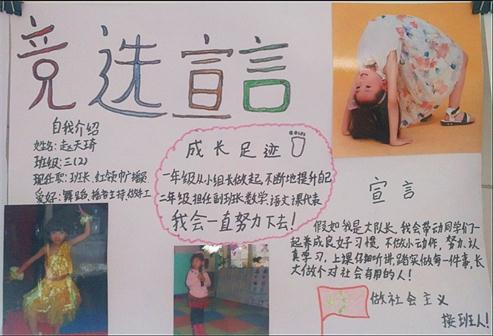 竞选宣言
自我介绍
姓名:赵天琦
班级:三(2)
现任职:班长、红领巾广播员
爱好:舞蹈、播音主持、做好手工
成长足迹
一年级从小组长做起,不断地提升自己
二年级担任副班长、数学、语文课代表
我会一直努力下去!
宣言
假如我是大队长,我会带动同学们一
起养成良好习惯,不做小动作,努力、认
真学习,上课仔细听讲,踏实做每一件事,长
大做个对社会有用的人!
做社会主义
接班人!